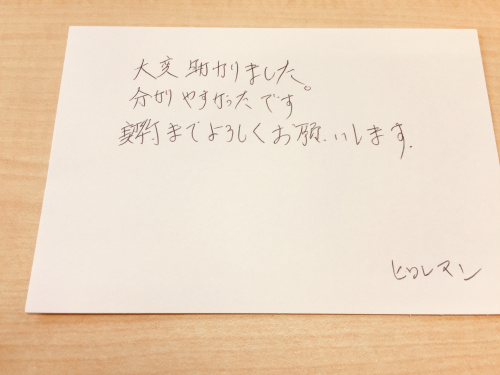 大変助かりました。
分かりやすかったです
契約までよろしくお願いします.
ヒロレマン